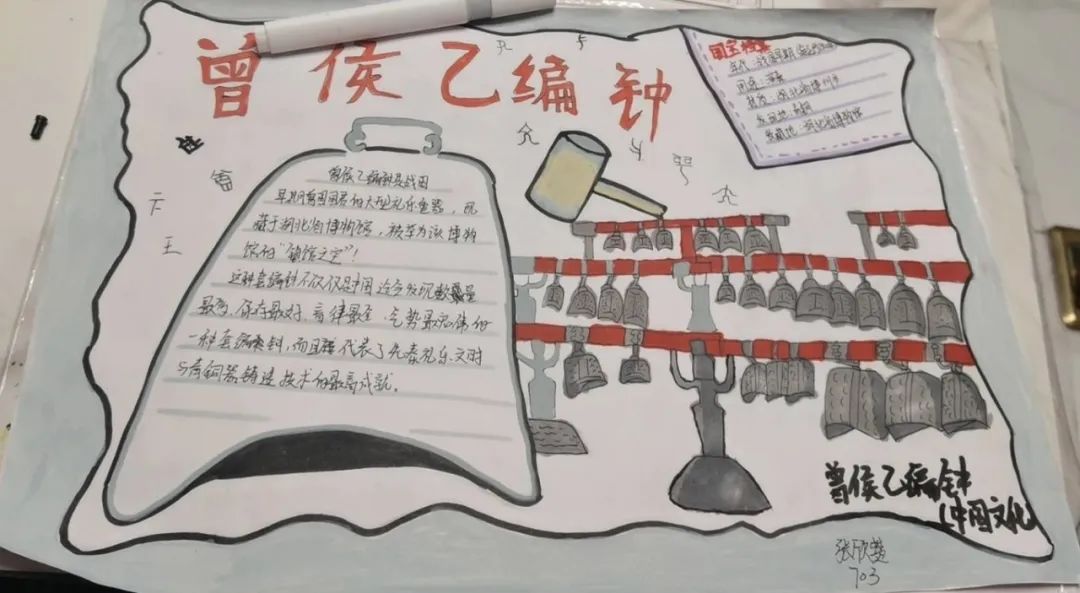 曾侯乙编钟
国宝档案
年代：战国早期
国家：曾国
出土：湖北省随州市
发掘地：
收藏地：湖北省博物馆
曾侯乙编钟是战国
早期曾国国君的大型礼乐重器，现
藏于湖北省博物馆，被奉为该博物
馆的“镇馆之宝”！
这种套编钟不仅仅是中国迄今发现数量
最多、保存最好、音律最全、气势最宏伟的
一种套编钟，而且 代表了先秦礼乐文明
与青铜器铸造技术的最高成就。
曾
王
曾侯乙编钟
中国文化
张欣楚
703